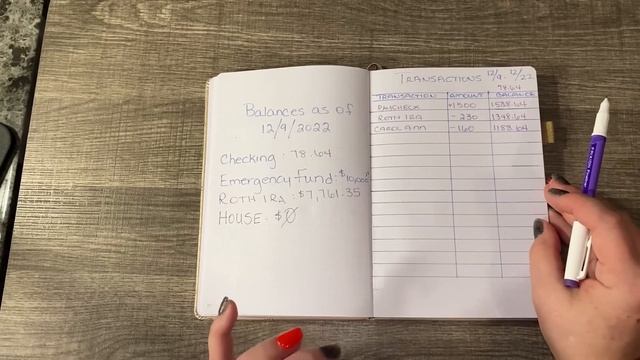 Balances as of
12/9/2022
Checking: 78.64
Emergency Fund: $10,000
ROTH IRA: $7,761.35
HOUSE: $0
TRANSACTIONS 12/9 - 12/22
78.64
TRANSACTION AMOUNT BALANCE
PAYCHECK +1500 1578.64
ROTH IRA - 230 1348.64
CAROL ANN - 160 1188.64